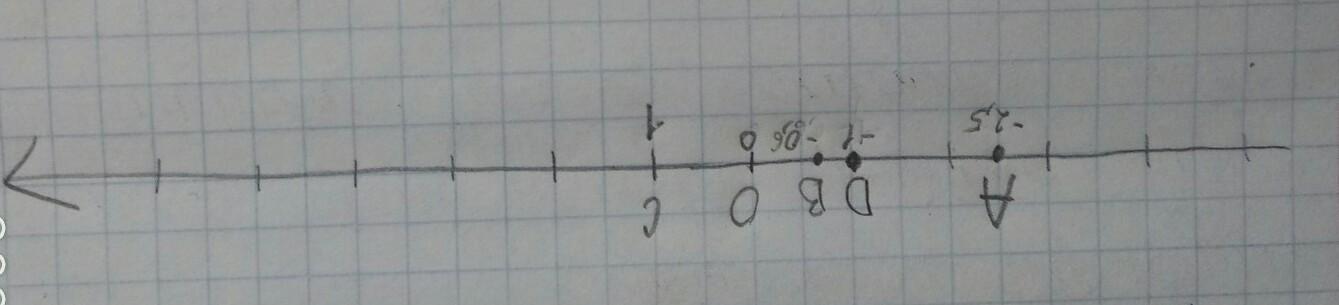 A D B O C
-2,5 -1 -0,6 0 1